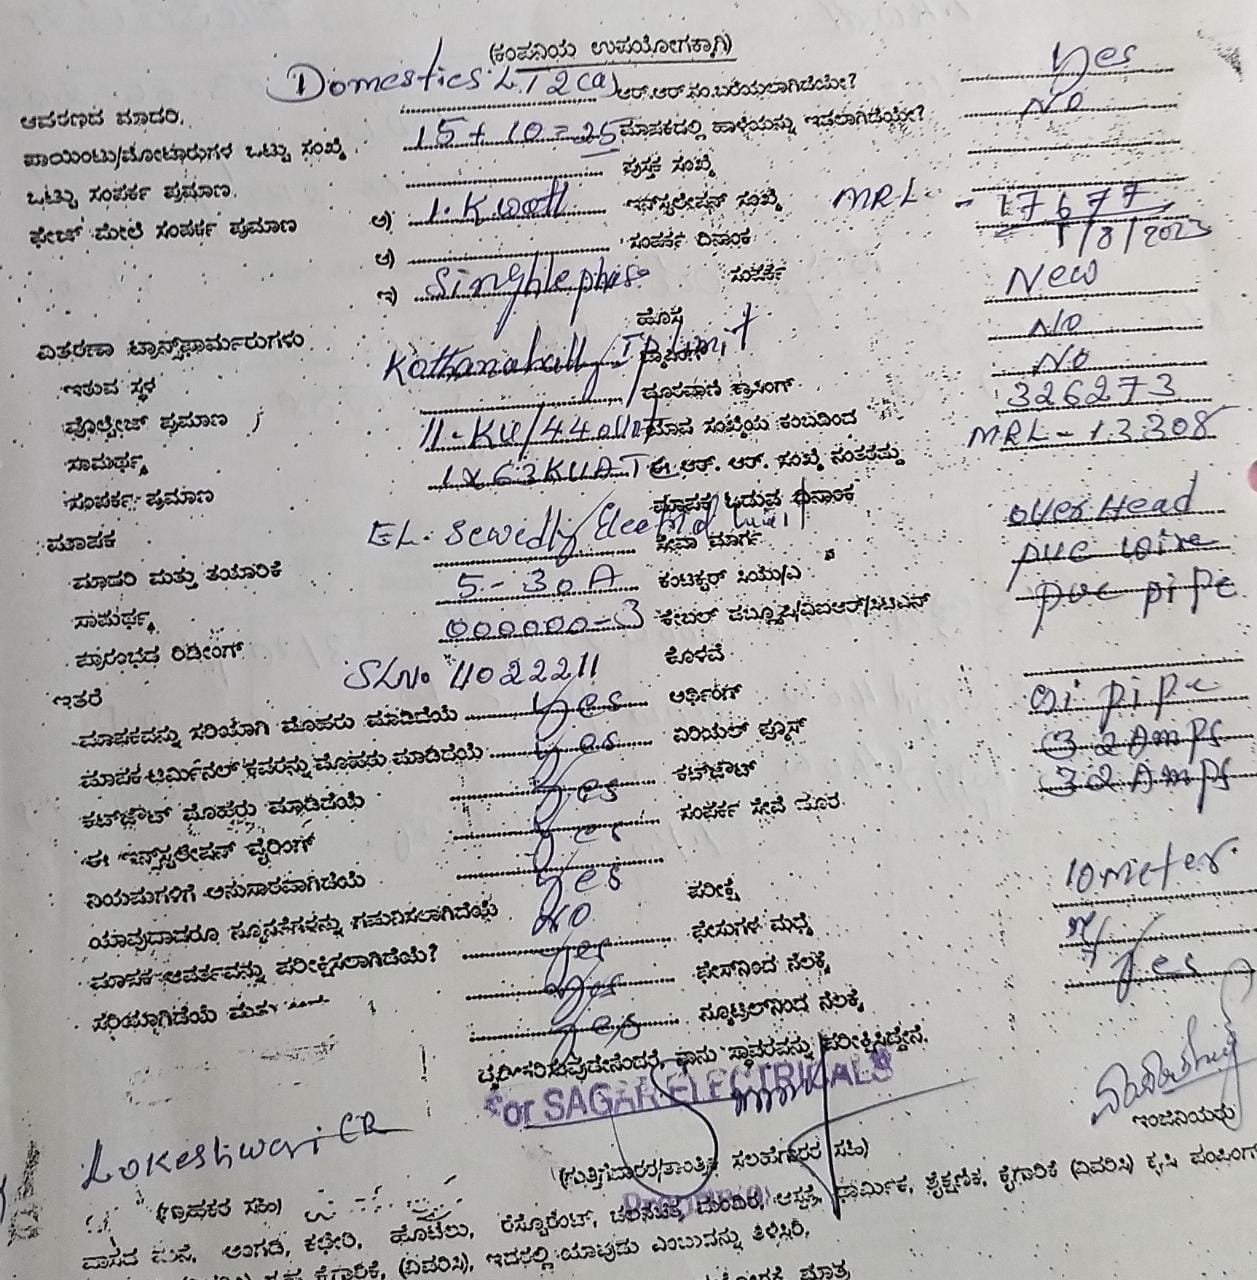 (ಕಂಪನಿಯ ಉಪಯೋಗಕ್ಕಾಗಿ)
ಆವರಣದ ಮಾದರಿ. Domestics LT2(a) ಆರ್.ಆರ್.ನಂ.ಬರೆಯಲಾಗಿದೆಯೇ? Yes
ಪಾಯಿಂಟು/ಮೋಟಾರುಗಳ ಒಟ್ಟು ಸಂಖ್ಯೆ 15+10=25 ಮಾಪಕದಲ್ಲಿ ಹಾಳೆಯನ್ನು ಇಡಲಾಗಿದೆಯೇ? No
ಒಟ್ಟು ಸಂಪರ್ಕ ಪ್ರಮಾಣ. ಪುಸ್ತಕ ಸಂಖ್ಯೆ
ಫೇಜ್ ಮೇಲೆ ಸಂಪರ್ಕ ಪ್ರಮಾಣ ಅ) 1.K watt ಇನ್‌ಸ್ಟಲೇಷನ್ ಸಂಖ್ಯೆ MRL - 17677
ಆ) ಸಂಪರ್ಕ ದಿನಾಂಕ 1/8/2023
ಇ) Singhlephase ಸಂಪರ್ಕ New
ವಿತರಣಾ ಟ್ರಾನ್ಸ್‌ಫಾರ್ಮರುಗಳು. ಹೊಸ No
ಇರುವ ಸ್ಥಳ Kothanahally No
ವೋಲ್ಟೇಜ್ ಪ್ರಮಾಣ ದೂರವಾಣಿ ಕ್ರಾಸಿಂಗ್ 326273
ಸಾಮರ್ಥ್ಯ 11-KV/44 ಸಂಖ್ಯೆಯ ಕಂಬದಿಂದ MRL-13308
ಸಂಪರ್ಕ ಪ್ರಮಾಣ 1x63KVA ಈ ಆರ್. ಆರ್. ಸಂಖ್ಯೆ ನಂತರದ್ದು
ಮಾಪಕ ಮಾಪಕ ಓದುವ ದಿನಾಂಕ over Head
ಮಾದರಿ ಮತ್ತು ತಯಾರಿಕೆ EL. Sewedly Electrical ಸೇವಾ ಮಾರ್ಗ pvc wire
ಸಾಮರ್ಥ್ಯ 5-30A ಕಂಡಕ್ಟರ್ ಸಿಯು/ಎ pvc pipe
ಪ್ರಾರಂಭದ ರಿಡೀಂಗ್ 000000-3 ಕೇಬಲ್
ಇತರೆ SLNo 11022211 ಕೊಳವೆ
ಮಾಪಕವನ್ನು ಸರಿಯಾಗಿ ಮೊಹರು ಮಾಡಿದೆಯೆ Yes ಅರ್ಥಿಂಗ್ Gi pipe
ಮಾಪಕ ಟರ್ಮಿನಲ್ ಕವರನ್ನು ಮೊಹರು ಮಾಡಿದೆಯೆ Yes ಏರಿಯಲ್ ಫ್ಯೂಸ್ 32 Amps
ಕಟ್‌ಔಟ್ ಮೊಹರು ಮಾಡಿದೆಯೆ Yes ಕಟ್‌ಔಟ್ 32 Amps
ಈ ಇನ್‌ಸ್ಟಲೇಷನ್ ವೈರಿಂಗ್ Yes ಸಂಪರ್ಕ ಸೇವೆ ದೂರ
ನಿಯಮಗಳಿಗೆ ಅನುಸಾರವಾಗಿದೆಯೆ Yes 10 meter
ಯಾವುದಾದರೂ ನ್ಯೂನತೆಗಳನ್ನು ಗಮನಿಸಲಾಗಿದೆಯೆ No ಪರೀಕ್ಷೆ
ಮಾಪಕ ಆವರ್ತವನ್ನು ಪರೀಕ್ಷಿಸಲಾಗಿದೆಯೆ? Yes ಫೇಸುಗಳ ಮಧ್ಯೆ
ಸರಿಯಾಗಿದೆಯೆ ಮತ್ತು Yes ಫೇಸ್‌ನಿಂದ ನೆಲಕ್ಕೆ Yes
Yes ನ್ಯೂಟ್ರಲ್‌ನಿಂದ ನೆಲಕ್ಕೆ
ದೃಢೀಕರಿಸುವುದೇನೆಂದರೆ, ನಾನು ಸ್ಥಾವರವನ್ನು ಪರೀಕ್ಷಿಸಿದ್ದೇನೆ.
For SAGAR ELECTRICALS
Lokeshwari CR
ಇಂಜಿನಿಯರು
(ಗ್ರಾಹಕರ ಸಹಿ) (ಗುತ್ತಿಗೆದಾರರ/ತಾಂತ್ರಿಕ ಸಲಹೆಗಾರರ ಸಹಿ)
ವಾಸದ ಮನೆ, ಅಂಗಡಿ, ಕಛೇರಿ, ಹೊಟೆಲು, ರೆಸ್ಟೊರೆಂಟ್, ಚಲನಚಿತ್ರ ಮಂದಿರ, ಆಸ್ಪತ್ರೆ, ಧಾರ್ಮಿಕ, ಶೈಕ್ಷಣಿಕ, ಕೈಗಾರಿಕೆ (ವಿವರಿಸಿ) ಕೃಷಿ ಪಂಪಿಂಗ್
ಕೈಗಾರಿಕೆ, (ವಿವರಿಸಿ), ಇದರಲ್ಲಿ ಯಾವುದು ಎಂಬುದನ್ನು ತಿಳಿಸಿರಿ.
ಮಾತ್ರ